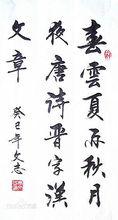 春雲夏雨秋月
夜唐詩晉字漢
文章
癸巳年文志